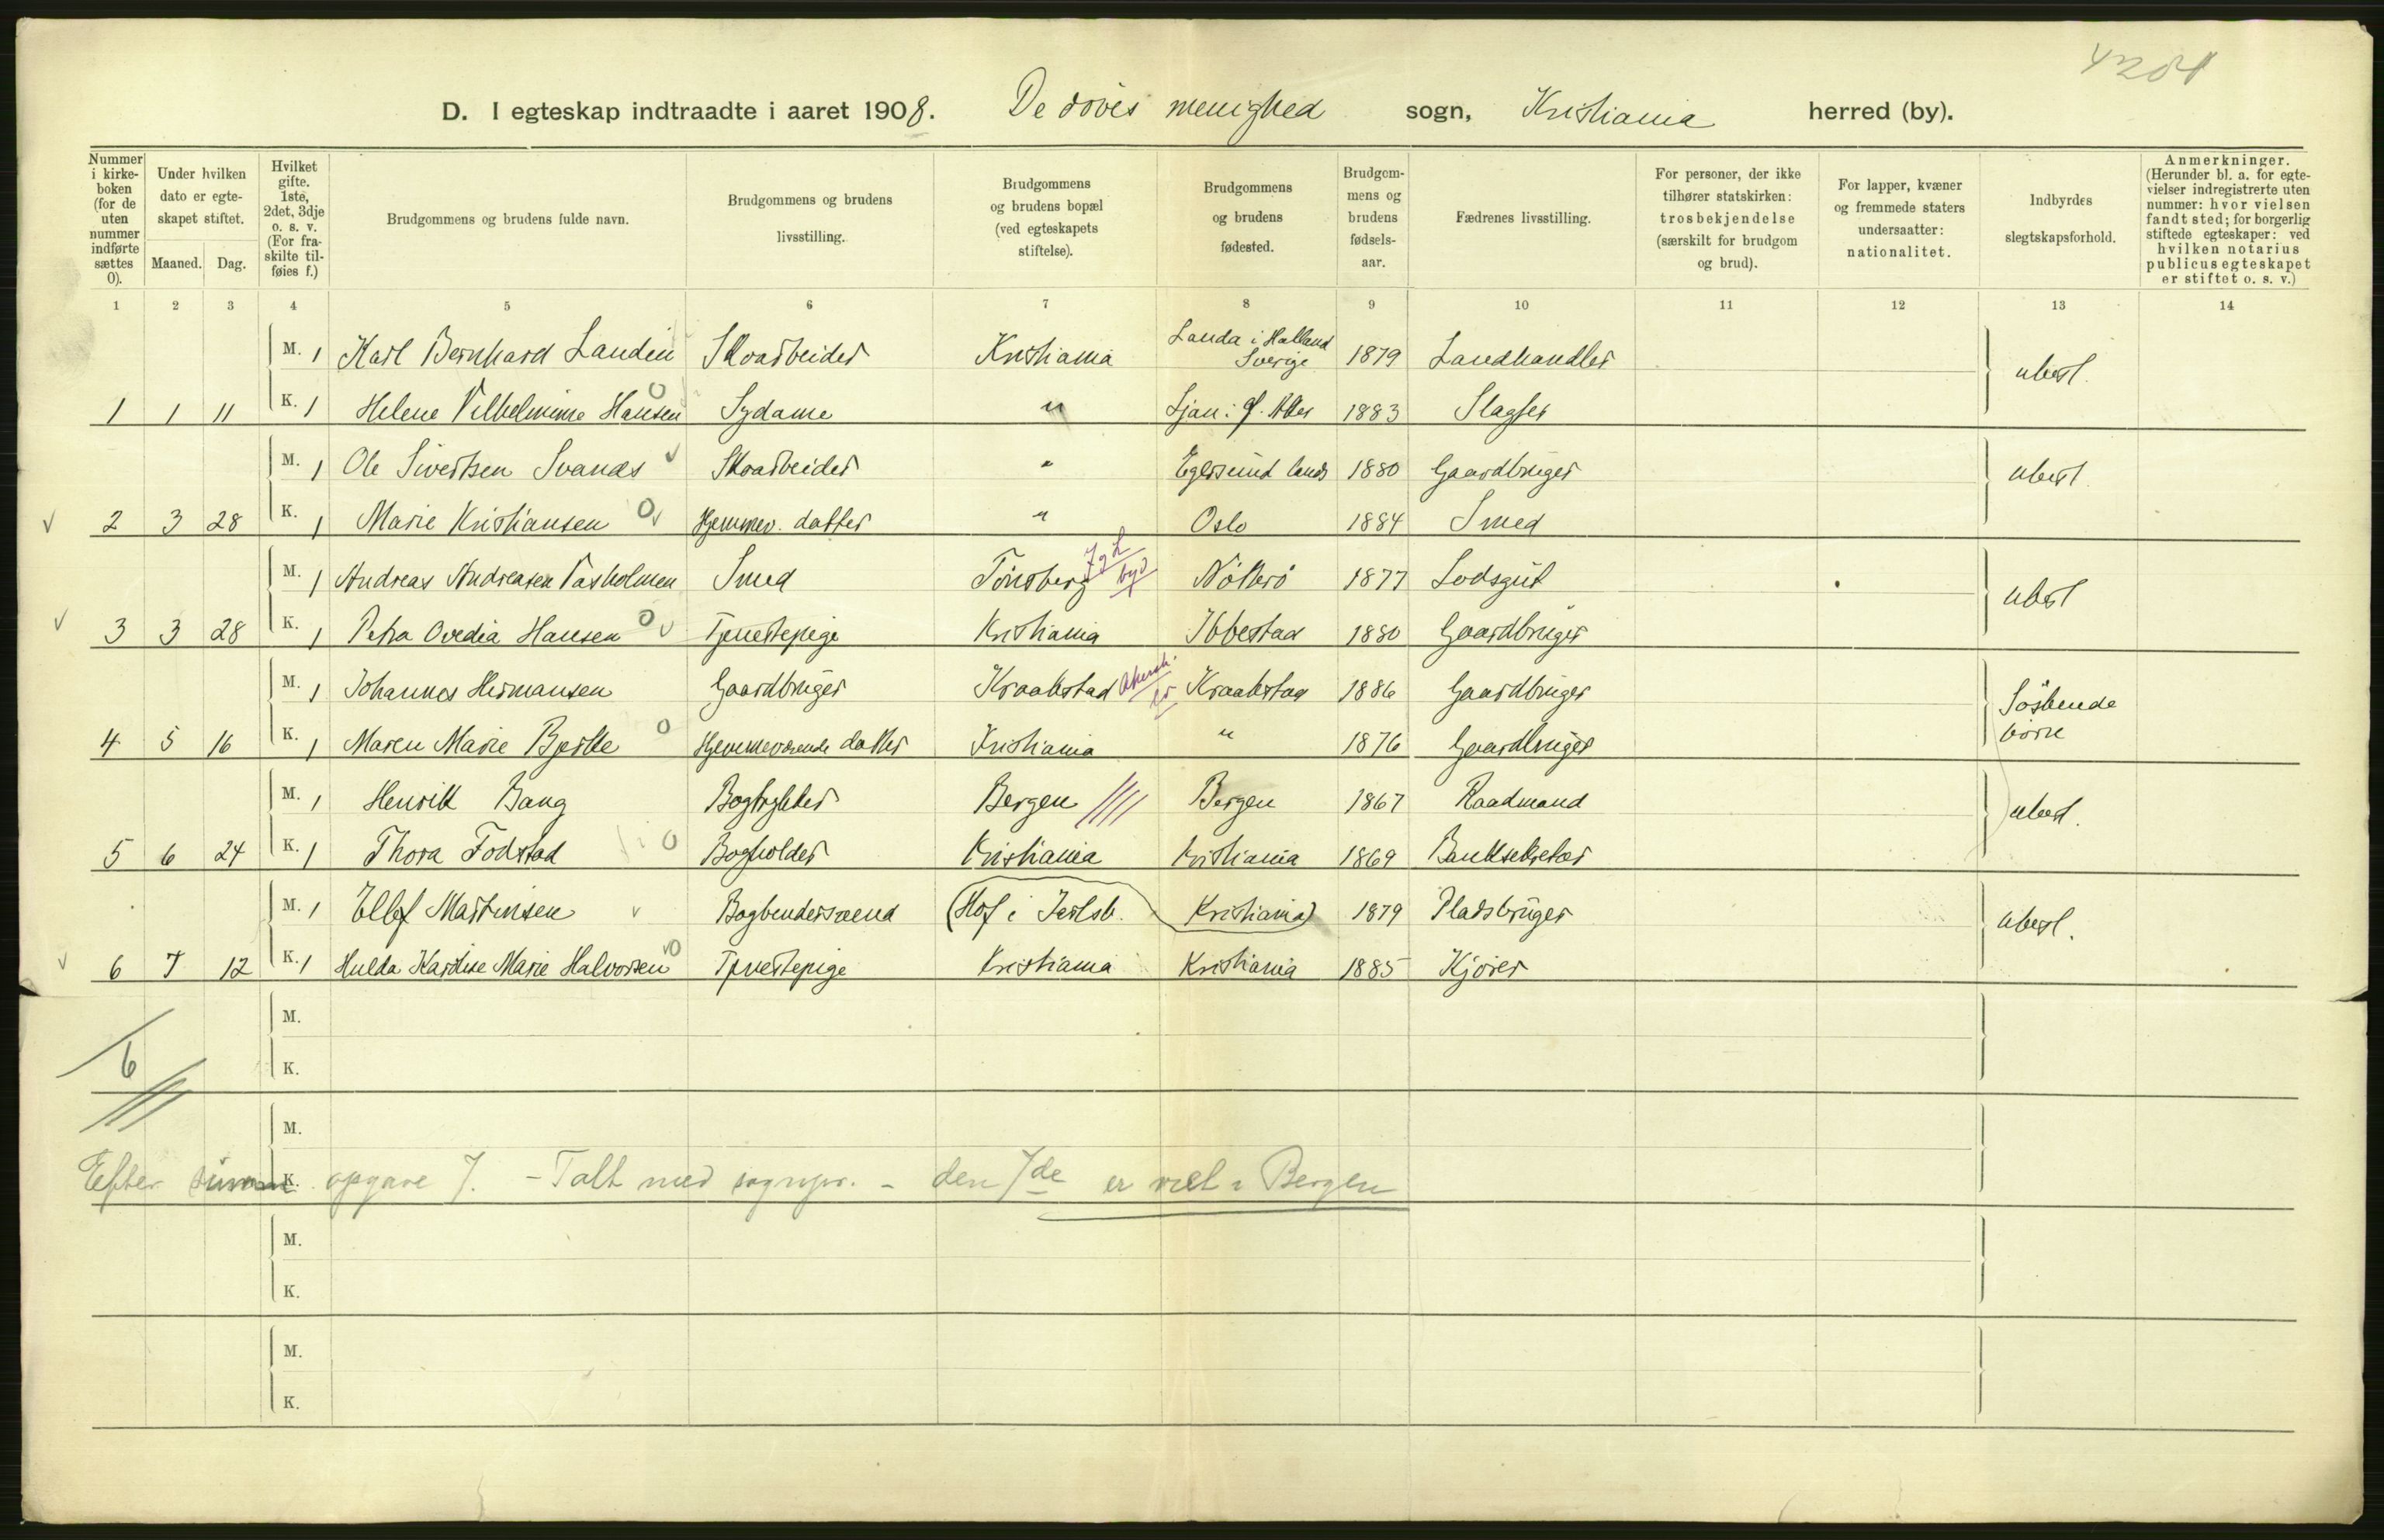 4201
D. I egteskap indtraadte i aaret 1908. De døves menighed sogn, Kristiania herred (by).
Nummer i kirkeboken (for de uten nummer indførte sættes 0).
Under hvilken dato er egteskapet stiftet.
Maaned. Dag.
Hvilket gifte. 1ste, 2det, 3dje o. s. v. (For fraskilte tilføies f.)
Brudgommens og brudens fulde navn.
Brudgommens og brudens livsstilling.
Brudgommens og brudens bopæl (ved egteskapets stiftelse).
Brudgommens og brudens fødested.
Brudgommens og brudens fødselsaar.
Fædrenes livsstilling.
For personer, der ikke tilhører statskirken: trosbekjendelse (særskilt for brudgom og brud).
For lapper, kvæner og fremmede staters undersaatter: nationalitet.
Indbyrdes slegtskapsforhold.
Anmerkninger. (Herunder bl. a. for egtevielser indregistrerte uten nummer: hvor vielsen fandt sted; for borgerlig stiftede egteskaper: ved hvilken notarius publicus egteskapet er stiftet o. s. v.)
1 2 3 4 5 6 7 8 9 10 11 12 13 14
M. 1 Karl Bernhard Landin Skoarbeider Kristiania Landa i Halland Sverige 1879 Landhandler ubesl.
1 1 11 K. 1 Helene Vilhelmine Hansen 0 Sydame " Ljan: Ø. Aker 1883 Slagter
M. 1 Ole Sivertsen Svanes v Skoarbeider " Egersund lands 1880 Gaardbruger ubesl.
v 2 3 28 K. 1 Marie Kristiansen 0 v Hjemmev. datter " Oslo 1884 Smed
M. 1 Andreas Andreasen Vasholmen Smed Tønsberg Jgl byd Nøtterø 1877 Lodsgut ubesl
v 3 3 28 K. 1 Petra Ovedia Hansen 0 v Tjenestepige Kristiania Ibbestad 1880 Gaardbruger
M. 1 Johannes Hermansen Gaardbruger Kraakstad Akersh. Kraakstad 1886 Gaardbruger Søskende børn
4 5 16 K. 1 Maren Marie Bjerke 0 Hjemmeværende datter Kristiania " 1876 Gaardbruger
M. 1 Henrik Bang Bogtrykker Bergen //// Bergen 1867 Raadmand ubesl.
5 6 24 K. 1 Thora Fodstad 0 Bogholder Kristiania Kristiania 1869 Banksekretær
M. 1 Ellef Martinsen v Bogbindersvend (Hof i Jarlsb. Kristiania) 1879 Pladsbruger ubesl.
v 6 7 12 K. 1 Hulda Kardise Marie Halvorsen v0 Tjenestepige Kristiania Kristiania 1885 Kjører
M.
6
K.
M.
K.
Efter summ. opgave 7. - Talt med sognpr. - den 7de er viet i Bergen
M.
K.
M.
K.